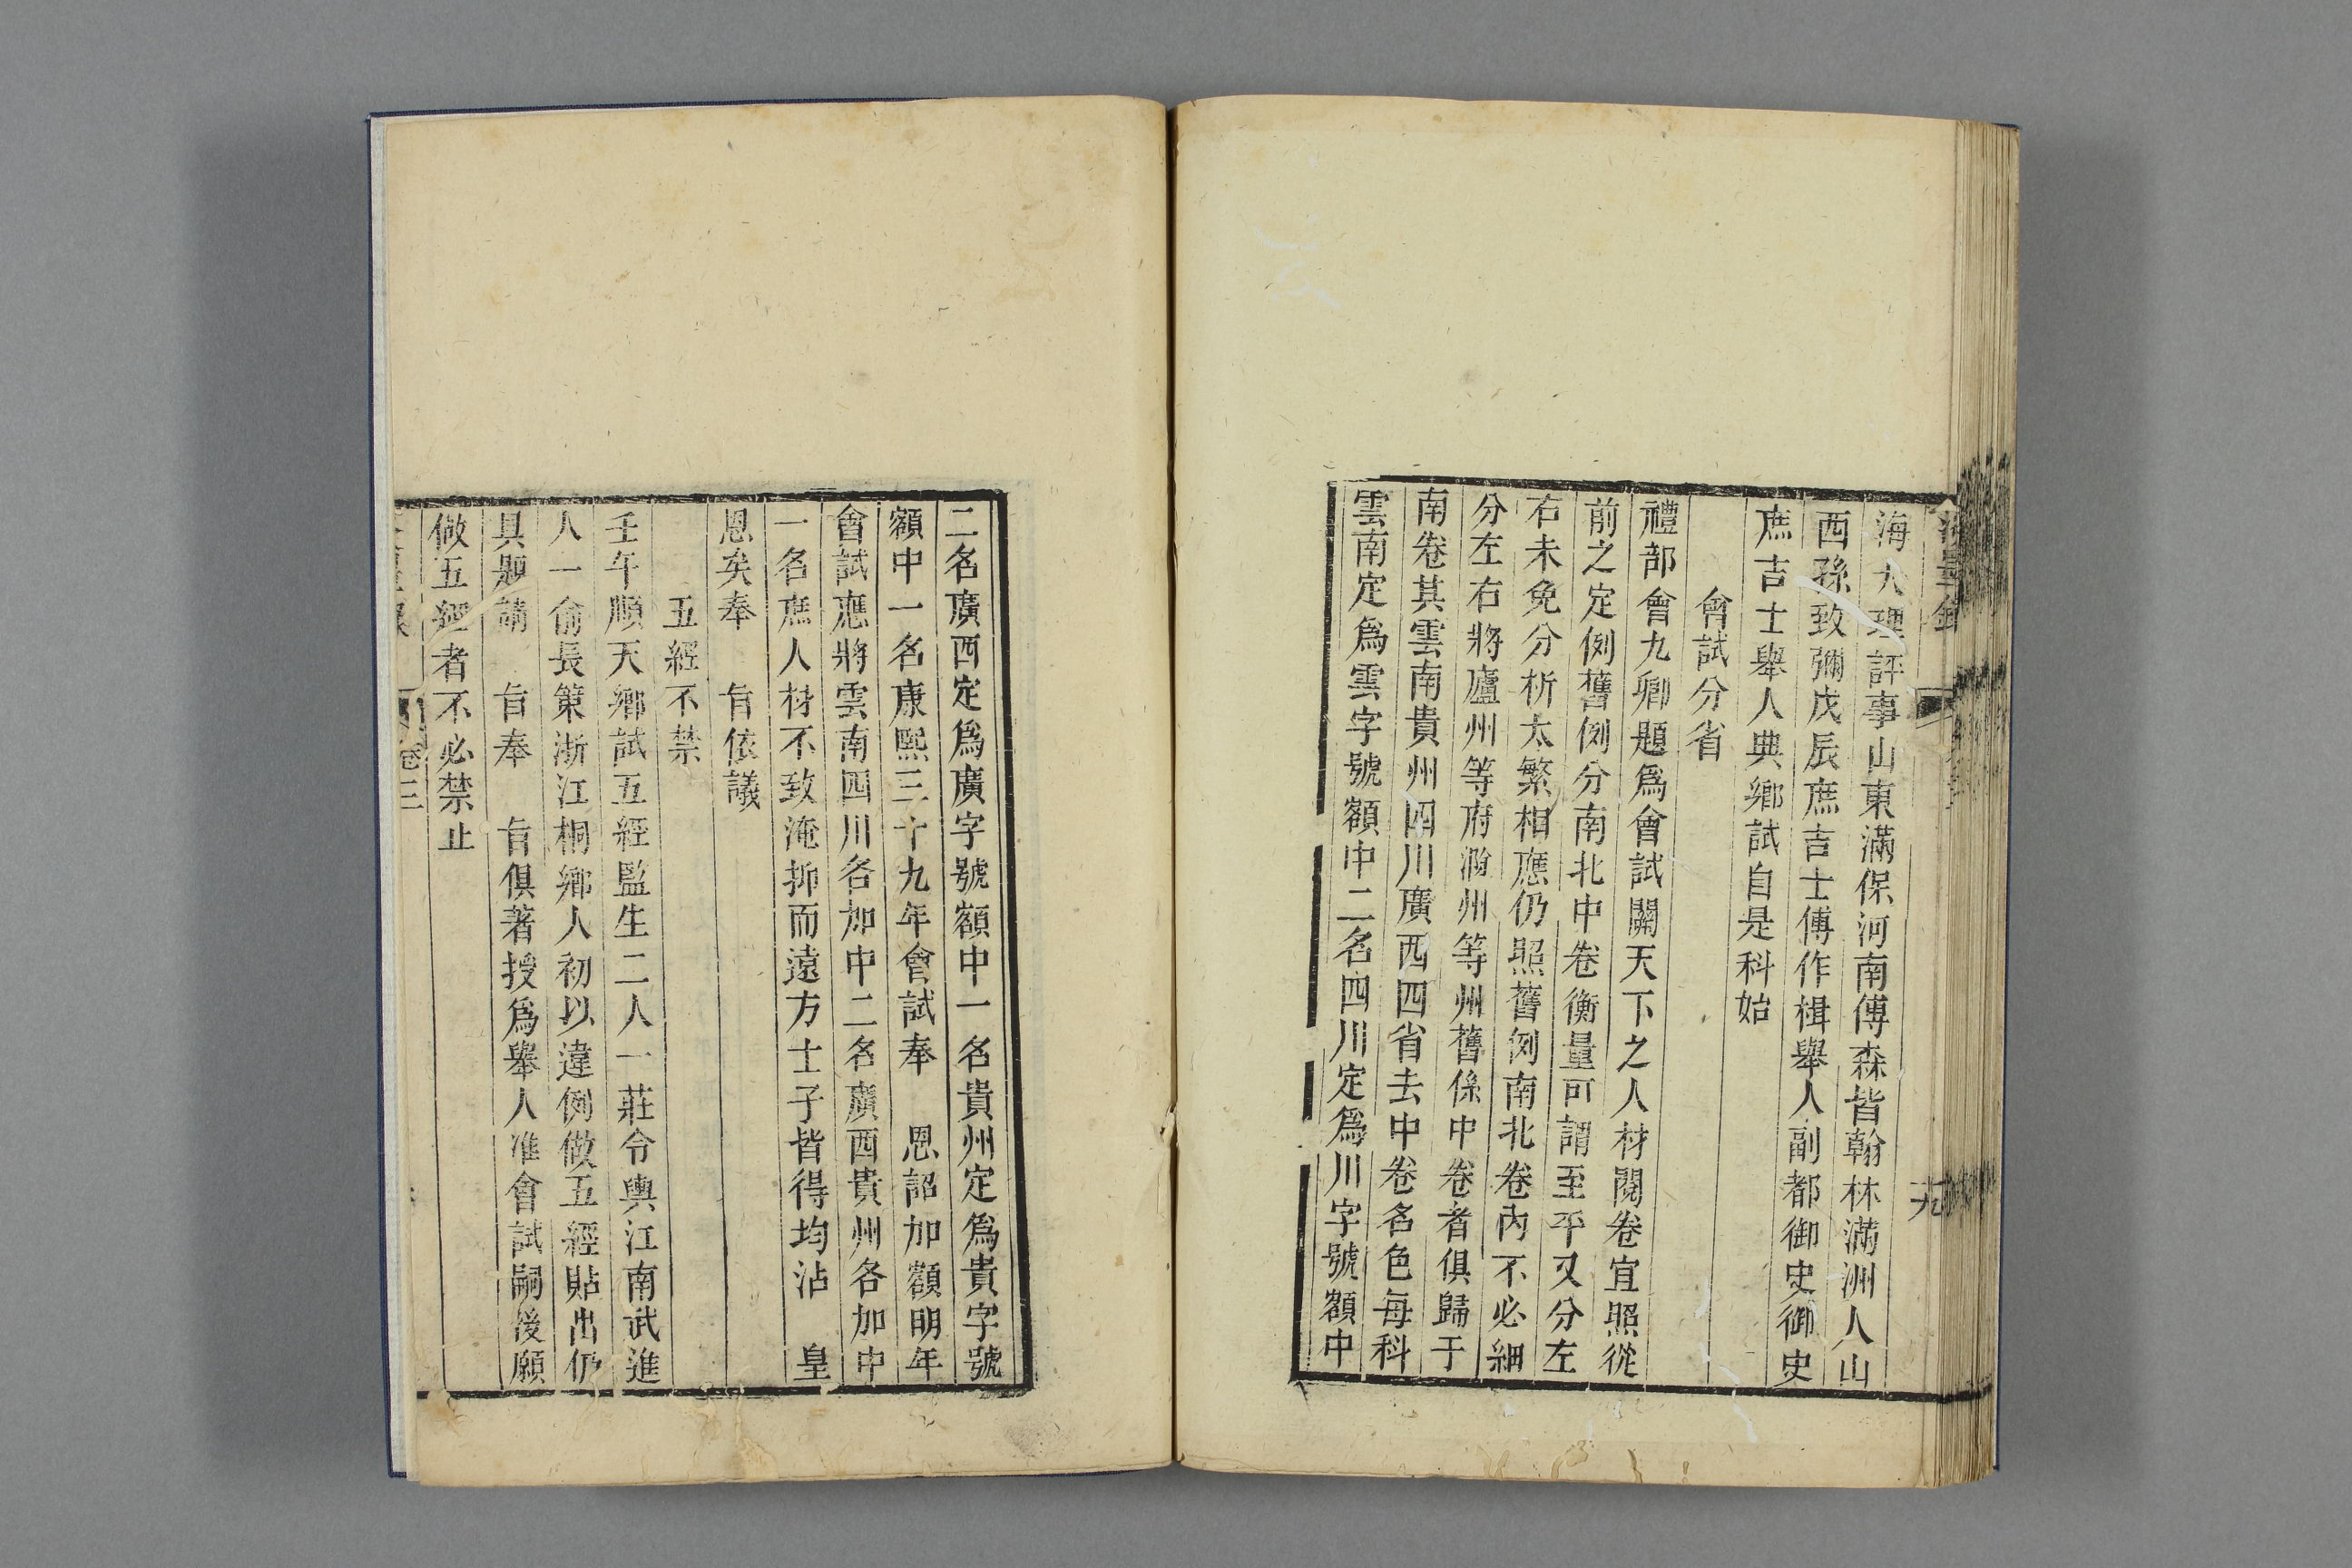 海大理評事山東滿保河南傅森皆翰林滿洲人山
西孫致彌戊辰庶吉士傅作楫舉人副都御史御史
庶吉士舉人典鄉試自是科始
會試分省
禮部會九卿題爲會試關天下之人材閱卷宜照從
前之定例舊例分南北中卷衡量可謂至平又分左
右未免分析太繁相應仍照舊例南北卷內不必細
分左右將廬州等府滁州等州舊係中卷者俱歸于
南卷其雲南貴州四川廣西四省去中卷名色每科
雲南定爲雲字號額中二名四川定爲川字號額中
二名廣西定爲廣字號額中一名貴州定爲貴字號
額中一名康熙三十九年會試奉 恩詔加額明年
會試應將雲南四川各加中二名廣西貴州各加中
一名庶人材不致淹抑而遠方士子皆得均沾 皇
恩矣奉 旨依議
五經不禁
壬午順天鄉試五經監生二人一莊令輿江南武進
人一俞長策浙江桐鄉人初以違例做五經貼出仍
具題請 旨奉 旨俱著授爲舉人准會試嗣後願
做五經者不必禁止
卷三